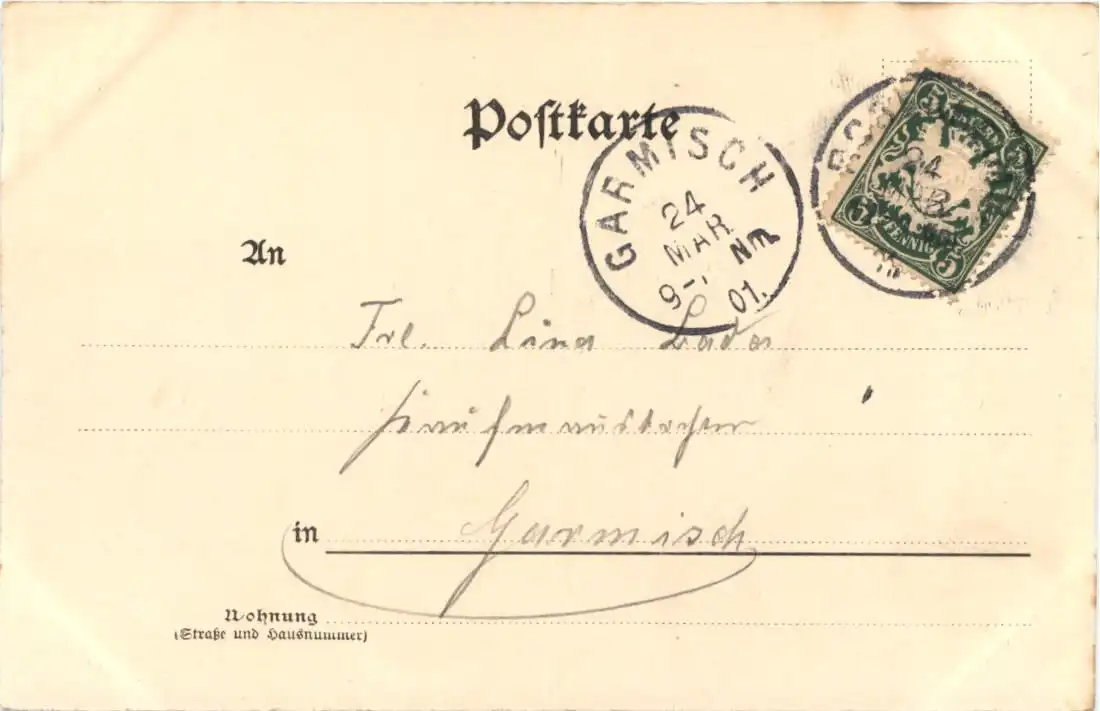 Postkarte
GARMISCH
24
MAR
9-, Nm
01.
24
5 5
5 PFENNIG 5
An
Frl. Lina Bader
Kaufmannstochter
in Garmisch
Wohnung
(Straße und Hausnummer)